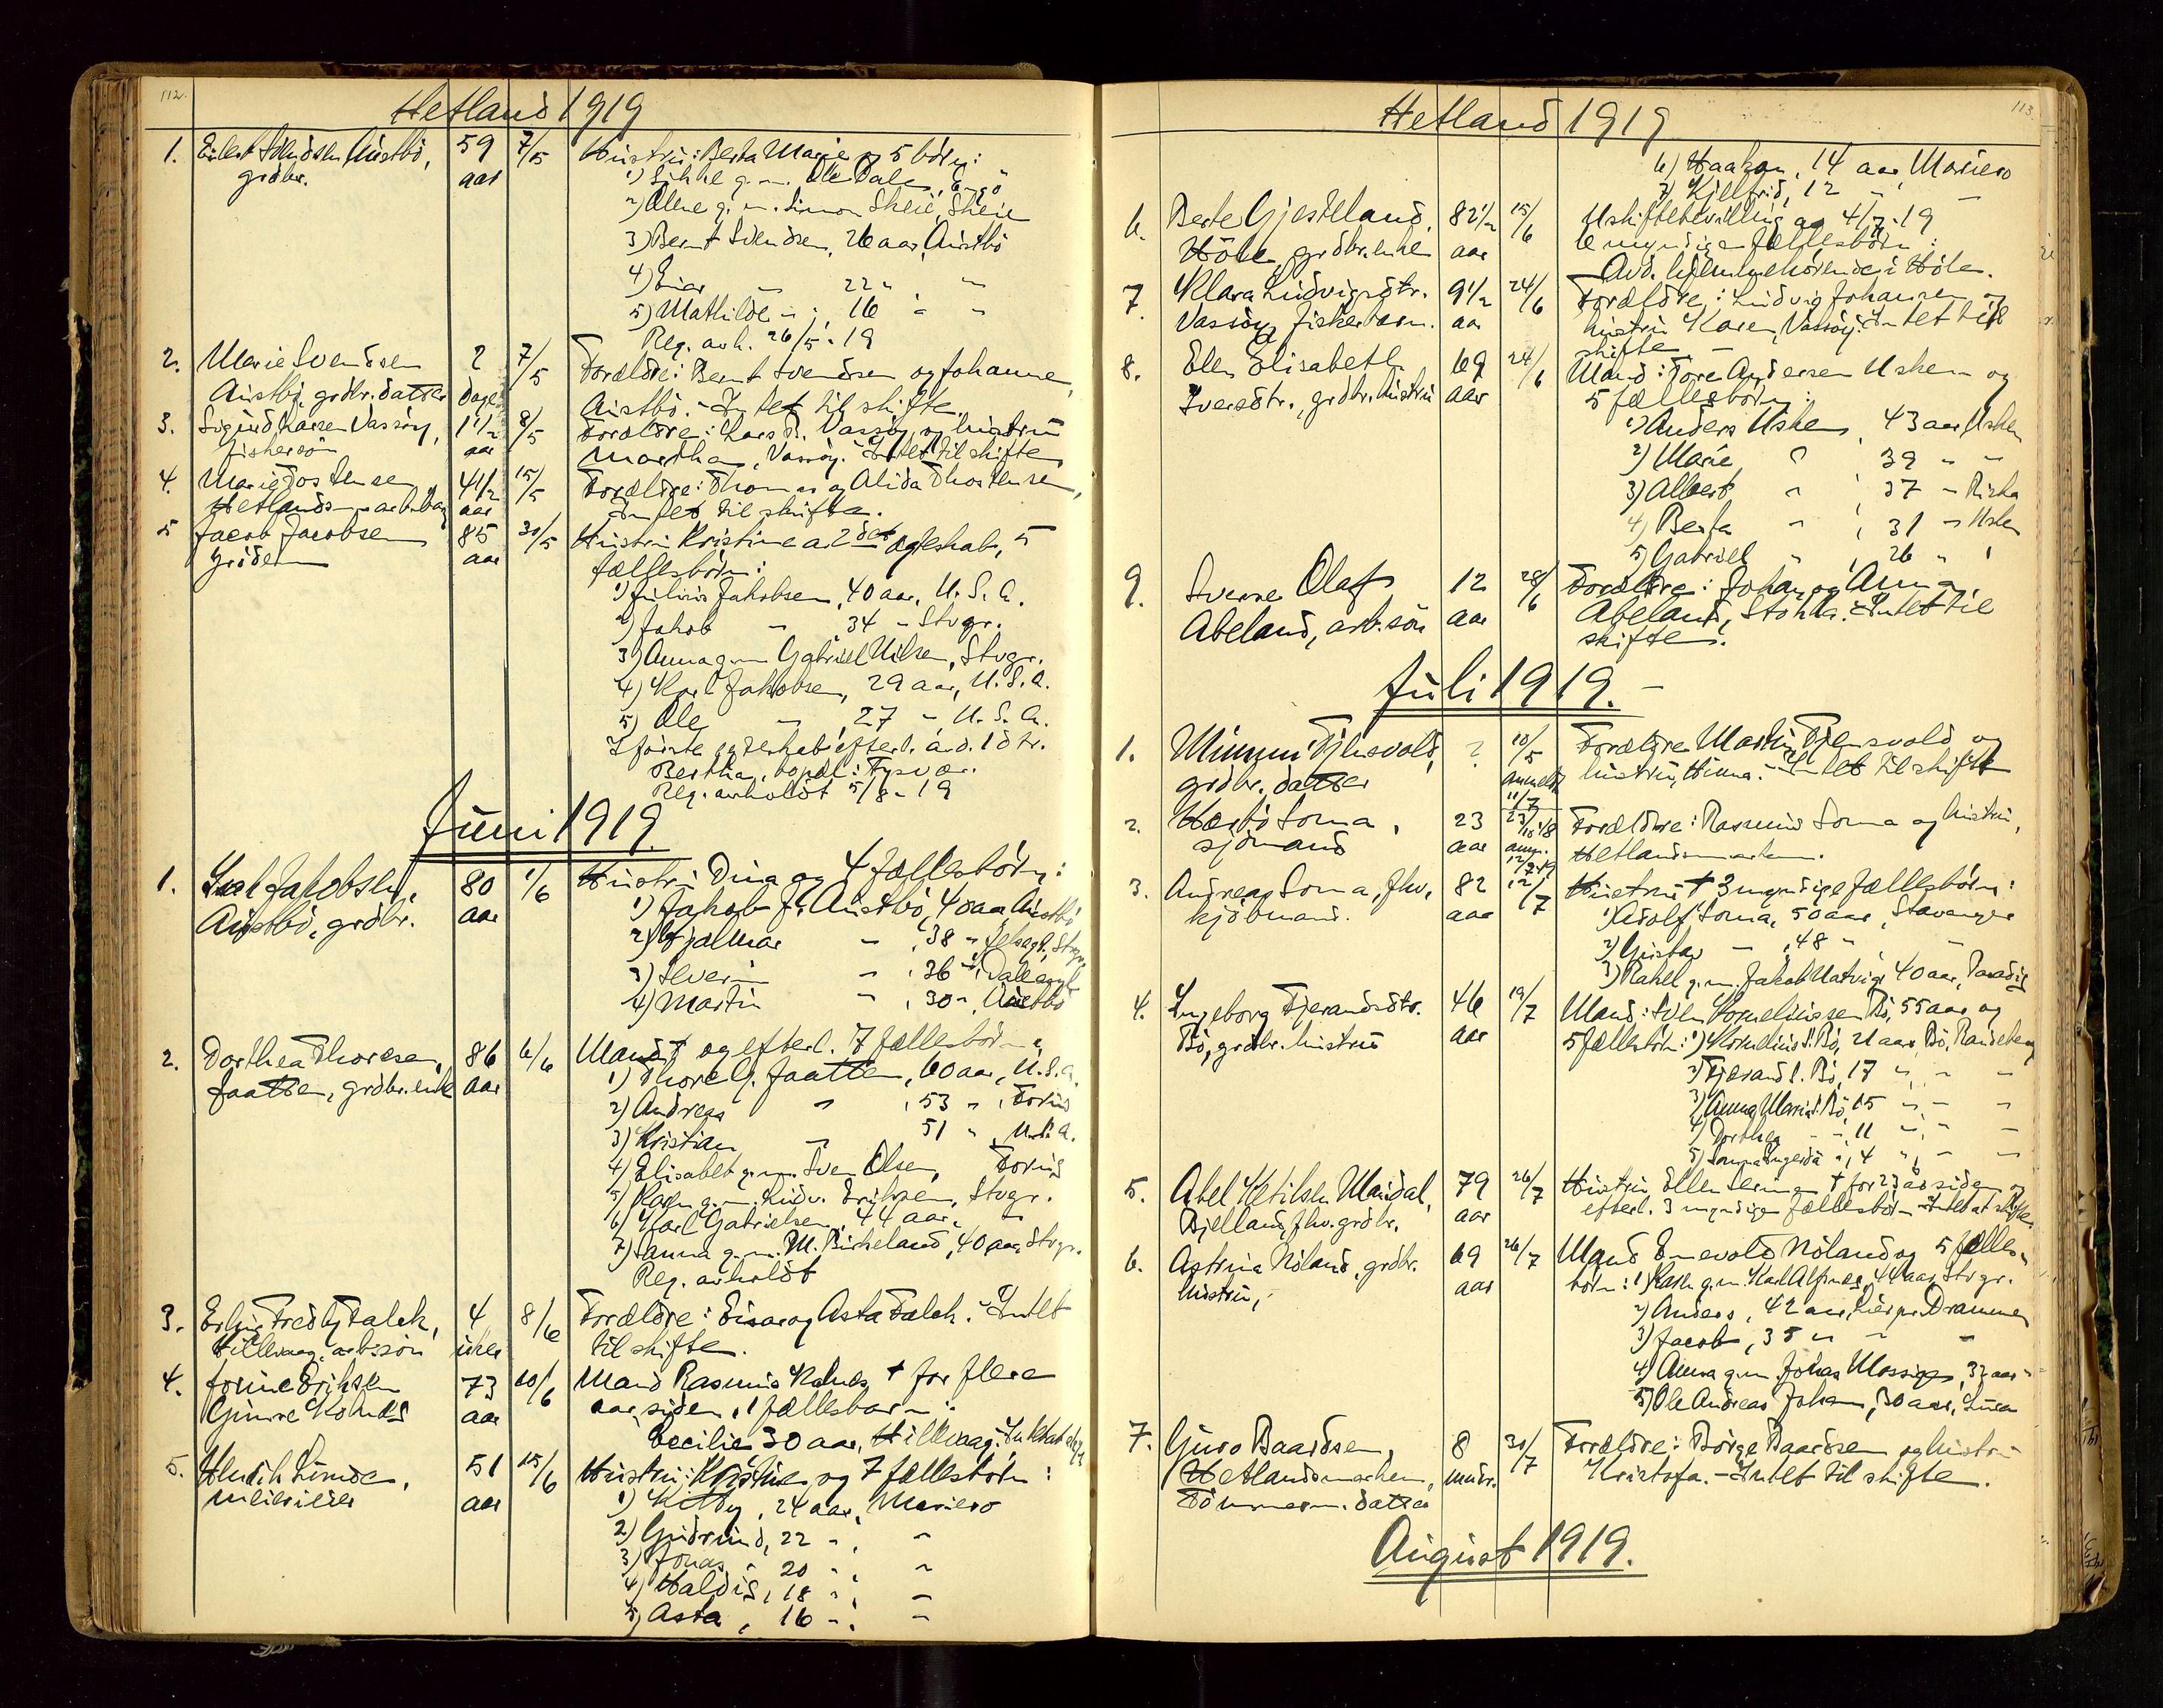 112.
Hetland 1919
1. Eilert Svendsen Austbø, 59 7/5 Hustru: Berta Marie og 5 börn:
grdbr. aar 1) Sikke g. m. Ole Dale, Engö
2) Oline g. m. Simon Skeie, Skeie
3) Bernt Svendsen, 26 aar, Austbö
4) Einar " 22 " "
5) Mathilde " , 16 " "
Reg. avh. 26/5 - 19
2. Marie Svendsen 2 7/5 Forældre: Bernt Svendsen og Johanne,
Austbö, grdbr. datter dage Austbö. - Intet til skifte.
3. Sigurd Larsen Vassöy, 1 1/2 8/5 Forældre: Lars S. Vassöy og hustru
fiskersön aar Martha, Vassöy. Intet til skifte
4. Marie Tostensen 4 1/2 15/5 Forældre: Thomas og Alida Thostensen,
Hetlandsm. aar Intet til skifte.
5 Jacob Jacobsen 85 30/5 Hustru Kristine av 2det egteskab, 5
Gröden aar fællesbörn:
1) Julius Jakobsen, 40 aar, U.S.A.
2) Jakob " 34 " Stvgr.
3) Anna g. m. Gabriel Nilsen, Stvgr.
4) Karl Jakobsen, 29 aar, U.S.A.
5) Ole " , 27 " U.S.A.
I förste egteskab efterl. avd. 1 dtr.
Bertha, bopæl: Tysvær.
Reg. avholdt 5/8 - 19
Juni 1919.
1. Jakobsen, 80 1/6 Hustru Dina og 4 fællesbörn:
Austbö, grdbr. aar 1) Jakob J. Austbö, 40 aar Austbö
2) Hjalmar " , 38 " Stvgr.
3) Severin " , 36 "
4) Martin " , 30 " Austbö
2. Dorthea Thoresen, 86 6/6 Mand † og efterl. 7 fællesbörn:
Jaatten, grdbr. enke aar 1) Thore G. Jaatten, 60 aar, U.S.A.
2) Andreas " , 53 " , Forus
3) Kristian " 51 " U.S.A.
4) Elisabet g. m. Sven Olsen, Forus
5) Karen g. m. Ludv. Eriksen, Stvgr.
6) Karl Gabrielsen, 44 aar, "
7) Anna g. m. M. Birkeland, 40 aar, Stvgr.
Reg. avholdt
3. Erling Fredtj Falck, 4 8/6 Forældre: Einar og Asta Falck. - Intet
Hillevaag, arb.sön uker til skifte.
4. Jorine Eriksen 73 10/6 Mand Rasmus Kolnes † for flere
Gunre Kolnes aar aar siden, 1 fællesbarn:
Cecilie 30 aar, Hillevaag. Intet at skifte
5. Henrik Lunde, 51 15/6 Hustru: Kristine og 7 fællesbörn:
meierieier aar 1) Kitty, 24 aar, Mariero
2) Gudrund, 22 " , "
3) Jonas " 20 " , "
4) Haldis, 18 " , "
5) Asta, 16 " , "
113.
Hetland 1919
6) Haakon, 14 aar, Mariero
7) Kjellfrid, 12 " "
6. Berte Gjesteland, 82 1/2 15/6 Uskiftebevilling av 4/7 - 19
Höle, grdbr. enke aar 6 myndige fællesbörn:
Avd. hjemmehörende i Höle.
7. Klara Ludvigsdtr. 9 1/2 24/6 Forældre: Ludvig Johansen og
Vassöy, fiskerbarn. aar hustru Karen, Vassöy. Intet til
skifte. -
8. Elen Elisabeth 69 24/6 Mand: Tore Andersen Usken og
Iversdtr., grdbr. hustru aar 5 fællesbörn:
1) Anders Usken, 43 aar Usken
2) Marie " , 39 " "
3) Albert " , 37 " Riska
4) Berta " , 31 " Usken
5) Gabriel " , 26 " "
9. Sverre Olaf 12 28/6 Forældre: Johan og Anna
Abeland, arb.sön aar Abeland, Stokka. Intet til
skifte.
Juli 1919. -
1. Mimmi Tjensvold, ? 10/5 Forældre Martin Tjensvold og
grdbr. datter anmeldt 11/7 hustru, Hinna. - Intet til skifte
2. Soma, 23 23/10 18 Forældre: Rasmus Soma og hustru,
sjömand aar anm. 12/7-19 Hetlandsmarken.
3. Andreas Soma, fhv. 82 12/7 Hustru † 3 myndige fællesbörn:
kjöbmand. aar 1) Adolf Soma, 50 aar, Stavanger
2) Gustav " , 48 " , "
3) Rakel g. m. Jakob Hatvig 40 aar, Paradis
4. Ingeborg Tjerandsdtr. 46 19/7 Mand: Sven Korneliussen Bö, 55 aar og
Bö, grdbr. hustru aar 5 fællesbörn: 1) Kornelius S. Bö, 21 aar, Bö, Randeberg
2) Tjerand S. Bö, 17 " , " "
3) Anna Marie S. Bö, 15 " , " "
4) Dorthea " " , 11 " , " "
5) " , 4 " , " "
5. Abel Ketilsen Maudal, 79 26/7 Hustru Ellen † for 23 aar siden og
Bjelland, fhv. grdbr. aar efterl. 3 myndige fællesbörn - Intet at skifte.
6. Astrina Nöland, grdbr. 69 26/7 Mand Enevald Nöland og 5 fælles-
hustru, aar börn: 1) Karen g. m. Karl Alfsnes, 44 aar, Stvgr.
2) Anders, 42 aar, Lier pr. Drammen
3) Jacob, 35 " " "
4) Anna g. m. Johan Mossige, 32 aar "
5) Ole Andreas Johan, 30 aar, Lura
7. Guro Baardsen, 8 30/7 Forældre: Börge Baardsen og hustru
Hetlandsmarken, mndr. Kristofa. - Intet til skifte.
Tömmerm. datter
August 1919.